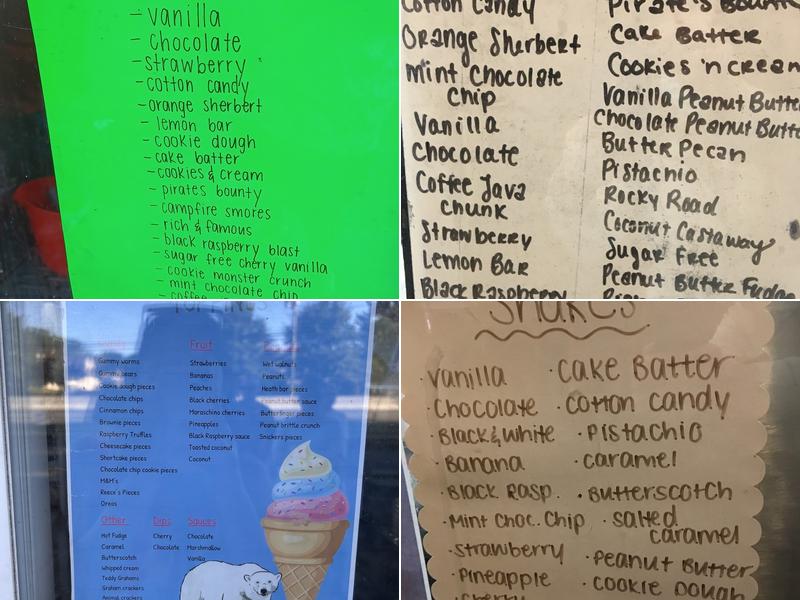 - vanilla
- chocolate
- strawberry
- cotton candy
- orange sherbert
- lemon bar
- cookie dough
- cake batter
- cookies & cream
- pirates bounty
- campfire smores
- rich & famous
- black raspberry blast
- sugar free cherry vanilla
- cookie monster crunch
- mint chocolate chip
Cotton Candy
Orange Sherbert
Mint Chocolate
Chip
Vanilla
Chocolate
Coffee Java
chunk
Strawberry
Lemon Bar
Black Raspberry
Pirate's
Cake Batter
Cookies 'n cream
Vanilla Peanut
Chocolate Peanut
Butter Pecan
Pistachio
Rocky Road
Coconut Castaway
Sugar Free
Peanut Butter Fudge
TOPPINGS
Gummy worms
Gummy bears
Cookie dough pieces
Chocolate chips
Cinnamon chips
Brownie pieces
Raspberry Truffles
Cheesecake pieces
Shortcake pieces
Chocolate chip cookie pieces
M&M's
Reece's Pieces
Oreos
Fruit
Strawberries
Bananas
Peaches
Black cherries
Maraschino cherries
Pineapples
Black Raspberry sauce
Toasted coconut
Coconut
Wet walnuts
Peanuts
Heath bar pieces
Peanut butter sauce
Butterfinger pieces
Peanut brittle crunch
Snickers pieces
Other
Hot Fudge
Caramel
Butterscotch
Whipped cream
Teddy Grahams
Graham crackers
Animal crackers
Dips
Cherry
Chocolate
Sauces
Chocolate
Marshmallow
Vanilla
Shakes
· Vanilla
· Chocolate
· Black & White
· Banana
· Black Rasp.
· Mint Choc. Chip
· Strawberry
· Pineapple
· Cake Batter
· cotton candy
· Pistachio
· caramel
· Butterscotch
· salted
caramel
· Peanut Butter
· cookie Dough